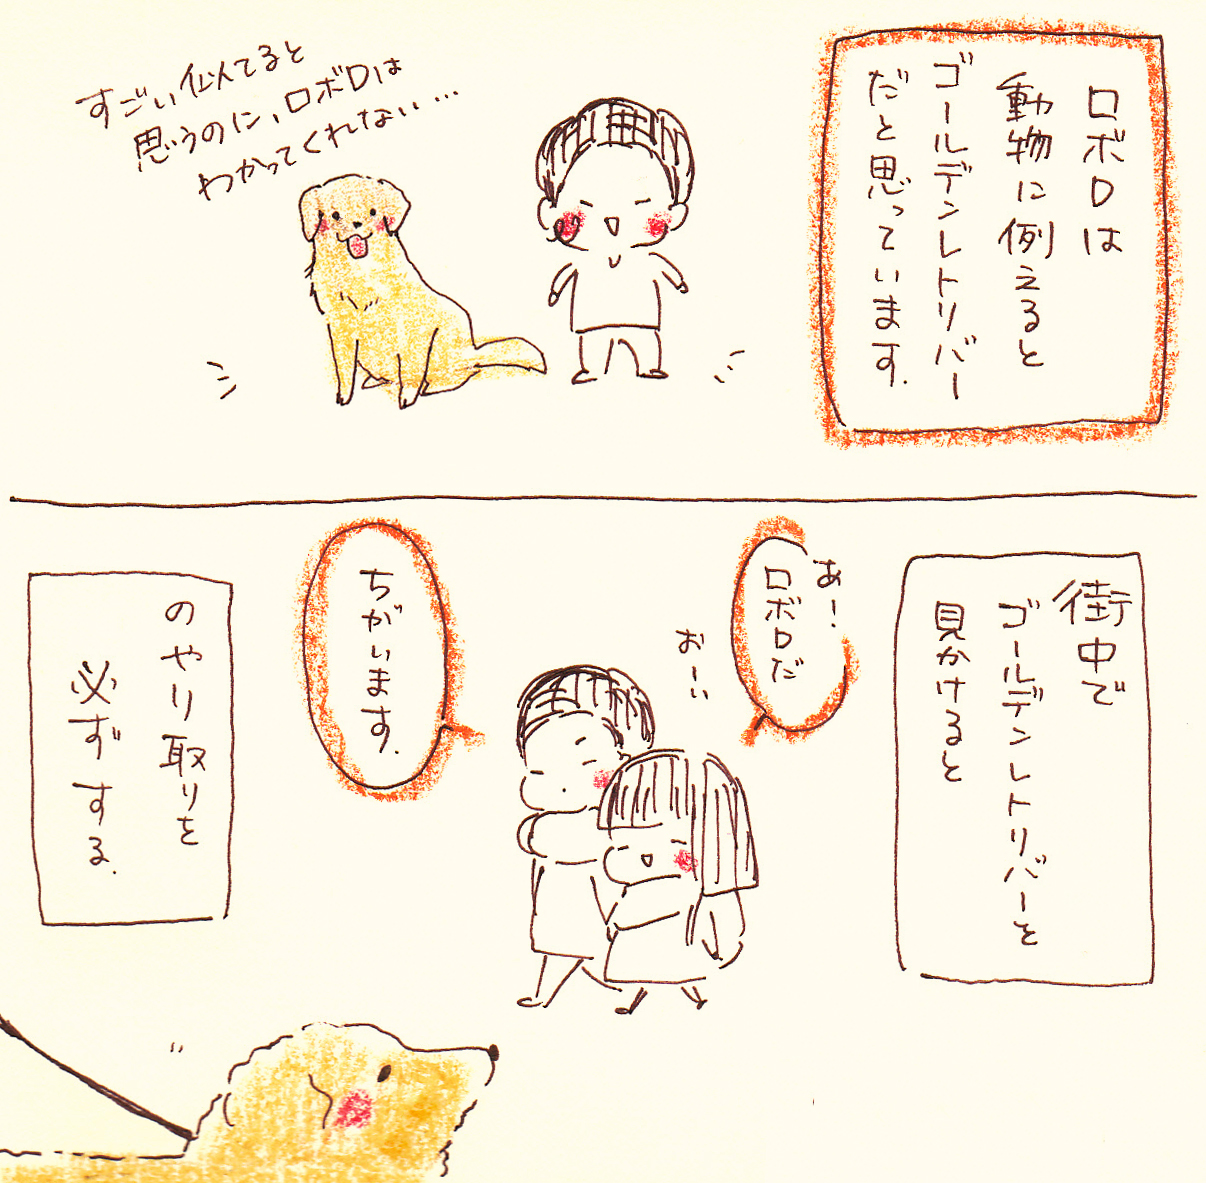 ロボロは
動物に例えると
ゴールデンレトリバー
だと思っています.
すごい似てると
思うのに、ロボロは
わかってくれない…
街中で
ゴールデンレトリバーを
見かけると
あ!
ロボロだ
おーい
ちがいます.
のやり取りを
必ずする.